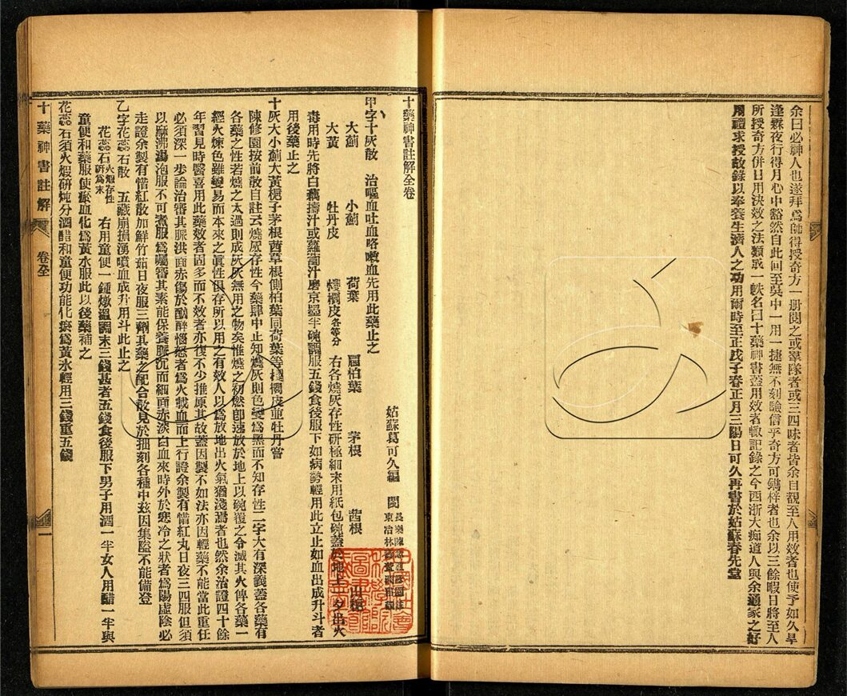 余曰必神人也遂拜為師得授奇方一册閱之或羣隊者或三四味者皆余目覩至人用效者也使予如久旱
逢霖夜行得月心中豁然自此回至吳中一用一捷無不刻驗信乎奇方可鐫梓者也余以三餘暇日將至人
所授奇方併日用決效之法類成一帙名曰十藥神書葢用效者輒記錄之今西浙大痴道人與余通家之好
用禮求授故錄以奉養生濟人之功用爾時至正戊子春正月三陽日可久再書於姑蘇春先堂
十藥神書註解全卷
姑蘇葛可久編 閩
甲字十灰散 治嘔血吐血咯血嗽血先用此藥止之
大薊 小薊 荷葉 扁柏葉 茅根 茜根
大黃 牡丹皮 椶櫚皮各等分 右各燒灰存性研極細末用紙包碗蓋於地上一夕出火
毒用時先將白藕搗汁或蘿蔔汁磨京墨半碗調服五錢食後服下如病勢輕用此立止如血出成升斗者
用後藥止之
十灰大小薊大黃梔子茅根茜草根側柏葉同荷葉等椶櫚皮並牡丹嘗
陳修園按前散自註云燒灰存性今藥肆中止知燒灰則色變為黑而不知存性二字大有深義蓋各藥有
各藥之性若燒之太過則成灰灰無用之物矣惟燒之初燃即速放於地上以碗覆之令滅其火俾各藥一
經火煉色雖變易而本來之真性俱存所以用之有效人以為放地出火氣猶淺焉者也然余治證四十餘
年習見時醫喜用此藥效者固多而不效者亦復不少推原其故蓋因製不如法亦因輕藥不能當此重任
必須深一步論治審其脈洪面赤傷於酗醉惱怒者為火載血而上行證余製有惜紅丸日夜三四服但須
以麻沸湯泡服不可煮服為囑審其素能保養脈沉而細面赤淡白血來時外於寒冷之狀者為陽虛陰必
走證余製有惜紅散加鮮竹茹日夜服三劑其藥之配合散見於拙刻各種中茲因集隘不能備登
乙字花蕊石散 五臟崩損湧噴血成升用斗此止之
花蕊石火煅存性研為末 右用童便一鍾燉溫調末三錢甚者五錢食後服下男子用酒一半女人用醋一半與
童便和藥服使瘀血化為黃水服此以後藥補之
花蕊石須火煅研燉分酒醋和童便功能化瘀為黃水輕用三錢重五錢
十藥神書註解
卷全
一